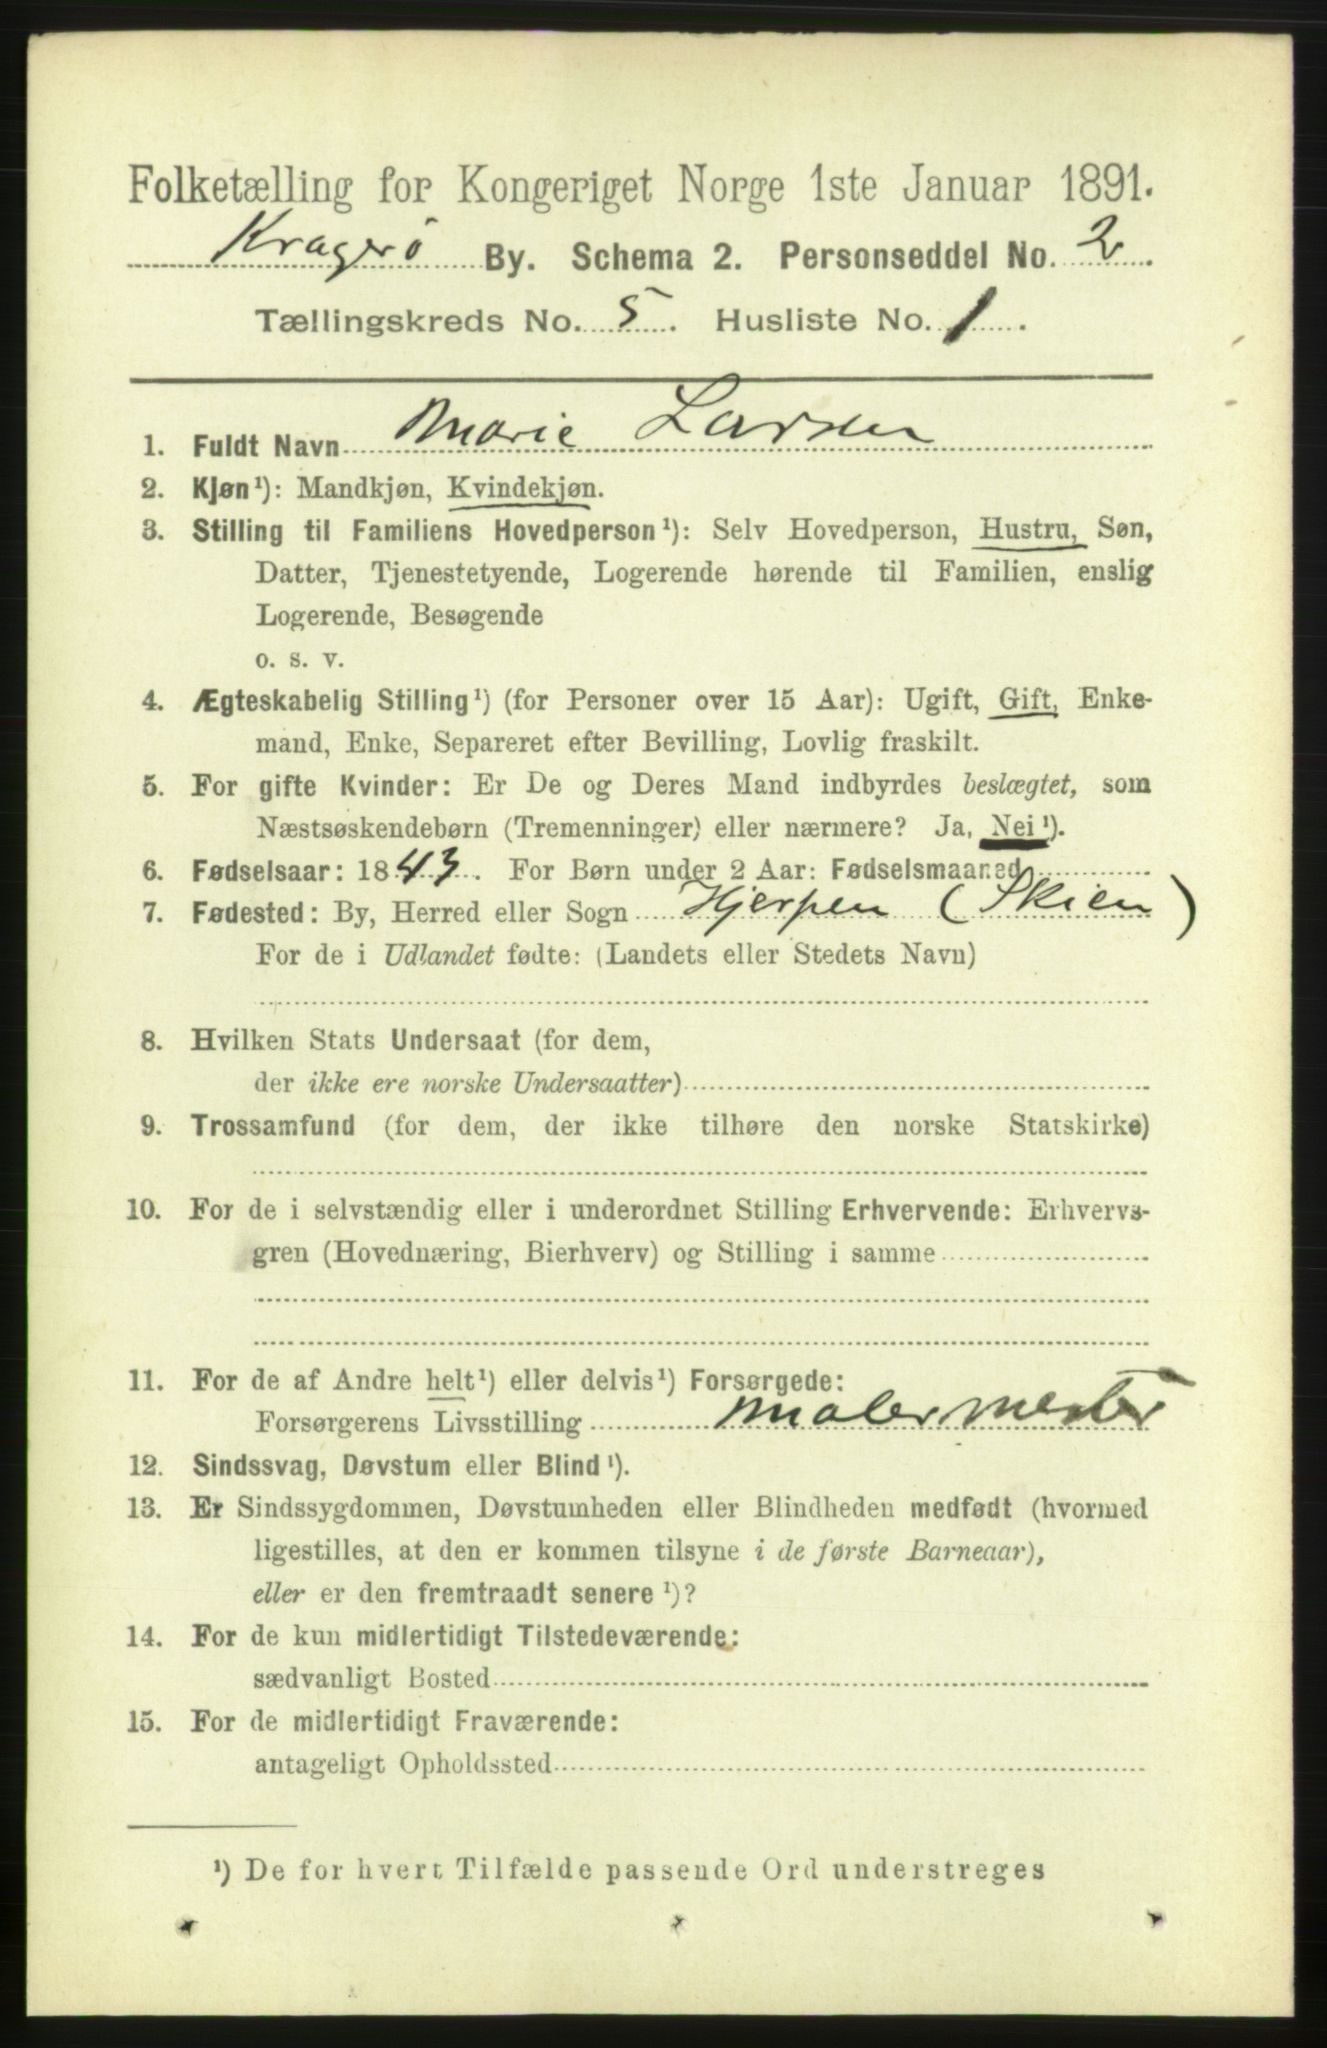 Folketælling for Kongeriget Norge 1ste Januar 1891.
Kragerø By. Schema 2. Personseddel No. 2.
Tællingskreds No. 5. Husliste No. 1.
1. Fuldt Navn Marie Larsen
2. Kjøn¹): Mandkjøn, Kvindekjøn.
3. Stilling til Familiens Hovedperson¹): Selv Hovedperson, Hustru, Søn,
Datter, Tjenestetyende, Logerende hørende til Familien, enslig
Logerende, Besøgende
o. s. v.
4. Ægteskabelig Stilling¹) (for Personer over 15 Aar): Ugift, Gift, Enke-
mand, Enke, Separeret efter Bevilling, Lovlig fraskilt.
5. For gifte Kvinder: Er De og Deres Mand indbyrdes beslægtet, som
Næstsøskendebørn (Tremenninger) eller nærmere? Ja, Nei¹).
6. Fødselsaar: 1843. For Børn under 2 Aar: Fødselsmaaned
7. Fødested: By, Herred eller Sogn Hjerpen (Skien)
For de i Udlandet fødte: (Landets eller Stedets Navn)
8. Hvilken Stats Undersaat (for dem,
der ikke ere norske Undersaatter)
9. Trossamfund (for dem, der ikke tilhøre den norske Statskirke)
10. For de i selvstændig eller i underordnet Stilling Erhvervende: Erhvervs-
gren (Hovednæring, Bierhverv) og Stilling i samme
11. For de af Andre helt¹) eller delvis¹) Forsørgede:
Forsørgerens Livsstilling Malermester
12. Sindssvag, Døvstum eller Blind¹).
13. Er Sindssygdommen, Døvstumheden eller Blindheden medfødt (hvormed
ligestilles, at den er kommen tilsyne i de første Barneaar),
eller er den fremtraadt senere¹)?
14. For de kun midlertidigt Tilstedeværende:
sædvanligt Bosted
15. For de midlertidigt Fraværende:
antageligt Opholdssted
¹) De for hvert Tilfælde passende Ord understreges